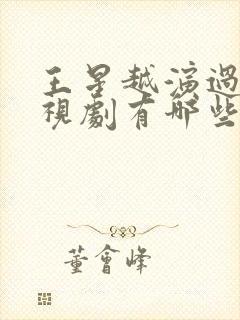 王星越演過
視劇有哪些
董會峰